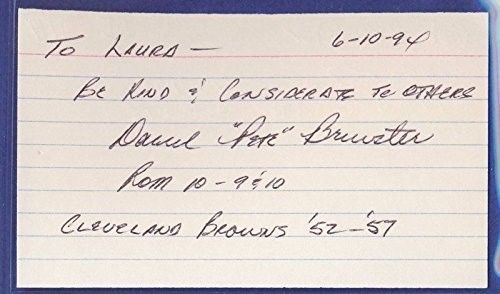 To Laura — 6-10-94
Be Kind & Considerate to others
Darrel "Pete" Brewster
Rom 10 - 9 & 10
Cleveland Browns '52-'57